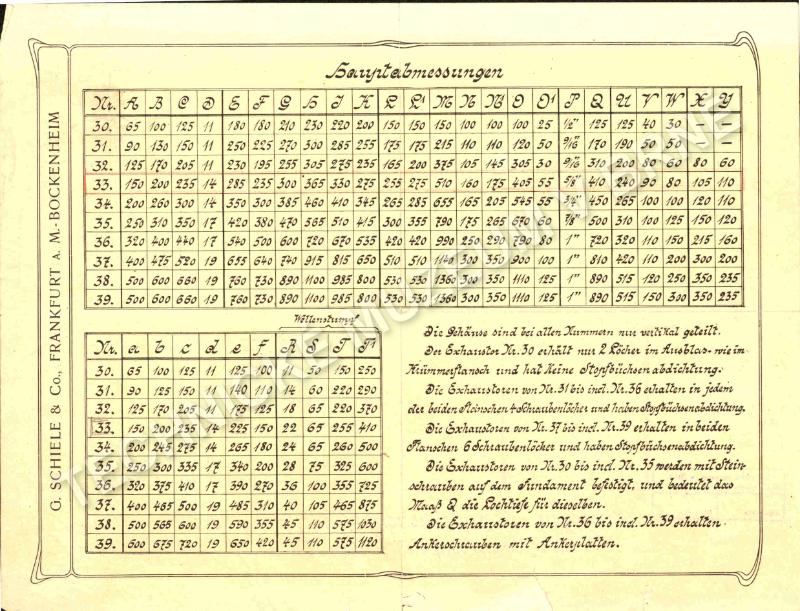 Hauptabmessungen
Nr. A B C D E F G H J K L L¹ M N N O O¹ P Q U V W X Y
30. 65 100 125 11 180 180 210 230 220 200 150 150 150 100 100 100 25 1/2" 125 125 40 30 — —
31. 90 130 150 11 250 225 270 300 285 255 175 175 215 110 110 120 50 9/16" 170 190 50 50 — —
32. 125 170 205 11 230 195 255 305 275 235 165 200 375 105 145 305 30 9/16" 310 200 80 60 80 60
33. 150 200 235 14 285 235 300 365 330 275 255 275 510 160 175 405 55 5/8" 410 240 90 80 105 110
34. 200 260 300 14 350 300 385 460 410 345 265 285 655 165 205 545 55 3/4" 450 265 100 100 120 110
35. 250 310 350 17 420 380 470 565 510 415 300 355 790 175 265 670 60 7/8" 500 310 100 125 150 120
36. 320 400 440 17 540 500 600 720 670 535 420 420 990 250 290 790 80 1" 720 320 110 150 215 160
37. 400 475 520 19 655 640 740 915 815 650 510 510 1140 300 350 900 100 1" 810 420 110 200 300 200
38. 500 600 660 19 760 730 890 1100 985 800 530 530 1360 300 350 1110 125 1" 890 515 120 250 350 235
39. 500 600 660 19 760 730 890 1100 985 800 530 530 1360 300 350 1110 125 1" 890 515 150 300 350 235
Wellenstumpf
Nr. a b c d e f R S T T¹
30. 65 100 125 11 125 100 11 50 150 250
31. 90 125 150 11 140 110 14 60 220 290
32. 125 170 205 11 175 125 18 65 220 370
33. 150 200 235 14 225 150 22 65 255 410
34. 200 245 275 14 265 180 24 65 260 500
35. 250 300 335 17 340 200 28 75 325 600
36. 320 375 410 17 390 270 36 100 355 725
37. 400 485 500 19 485 310 40 105 465 875
38. 500 565 600 19 590 355 45 110 575 1030
39. 600 675 720 19 650 420 45 110 575 1120
Die Gehäuse sind bei allen Nummern nur vertikal geteilt.
Der Exhaustor Nr. 30 erhält nur 2 Löcher im Ausblas- wie im
Krümmerflansch und hat keine Stopfbüchsenabdichtung.
Die Exhaustoren von Nr. 31 bis incl. Nr. 36 erhalten in jedem
der beiden Flanschen 4 Schraubenlöcher und haben Stopfbüchsenabdichtung.
Die Exhaustoren von Nr. 37 bis incl. Nr. 39 erhalten in beiden
Flanschen 6 Schraubenlöcher und haben Stopfbüchsenabdichtung.
Die Exhaustoren von Nr. 30 bis incl. Nr. 35 werden mit Stein-
schrauben auf dem Fundament befestigt, und bedeutet das
Maaß Q die Lochtiefe für dieselben.
Die Exhaustoren von Nr. 36 bis incl. Nr. 39 erhalten
Ankerschrauben mit Ankerplatten.
G. SCHIELE & Co., FRANKFURT A. M.-BOCKENHEIM